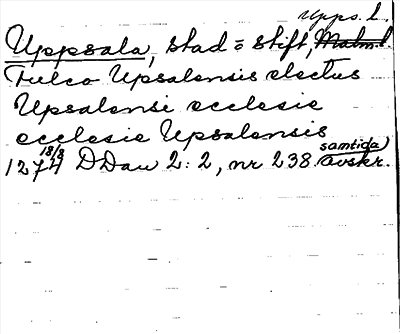 Upps. l.
Uppsala, stad = stift, Malm. l.
Fulco Upsalensis electus
Upsalensi ecclesie
ecclesie Upsalensis
18/8 samtida)
1274 DDan 2:2, nr 238. avskr.